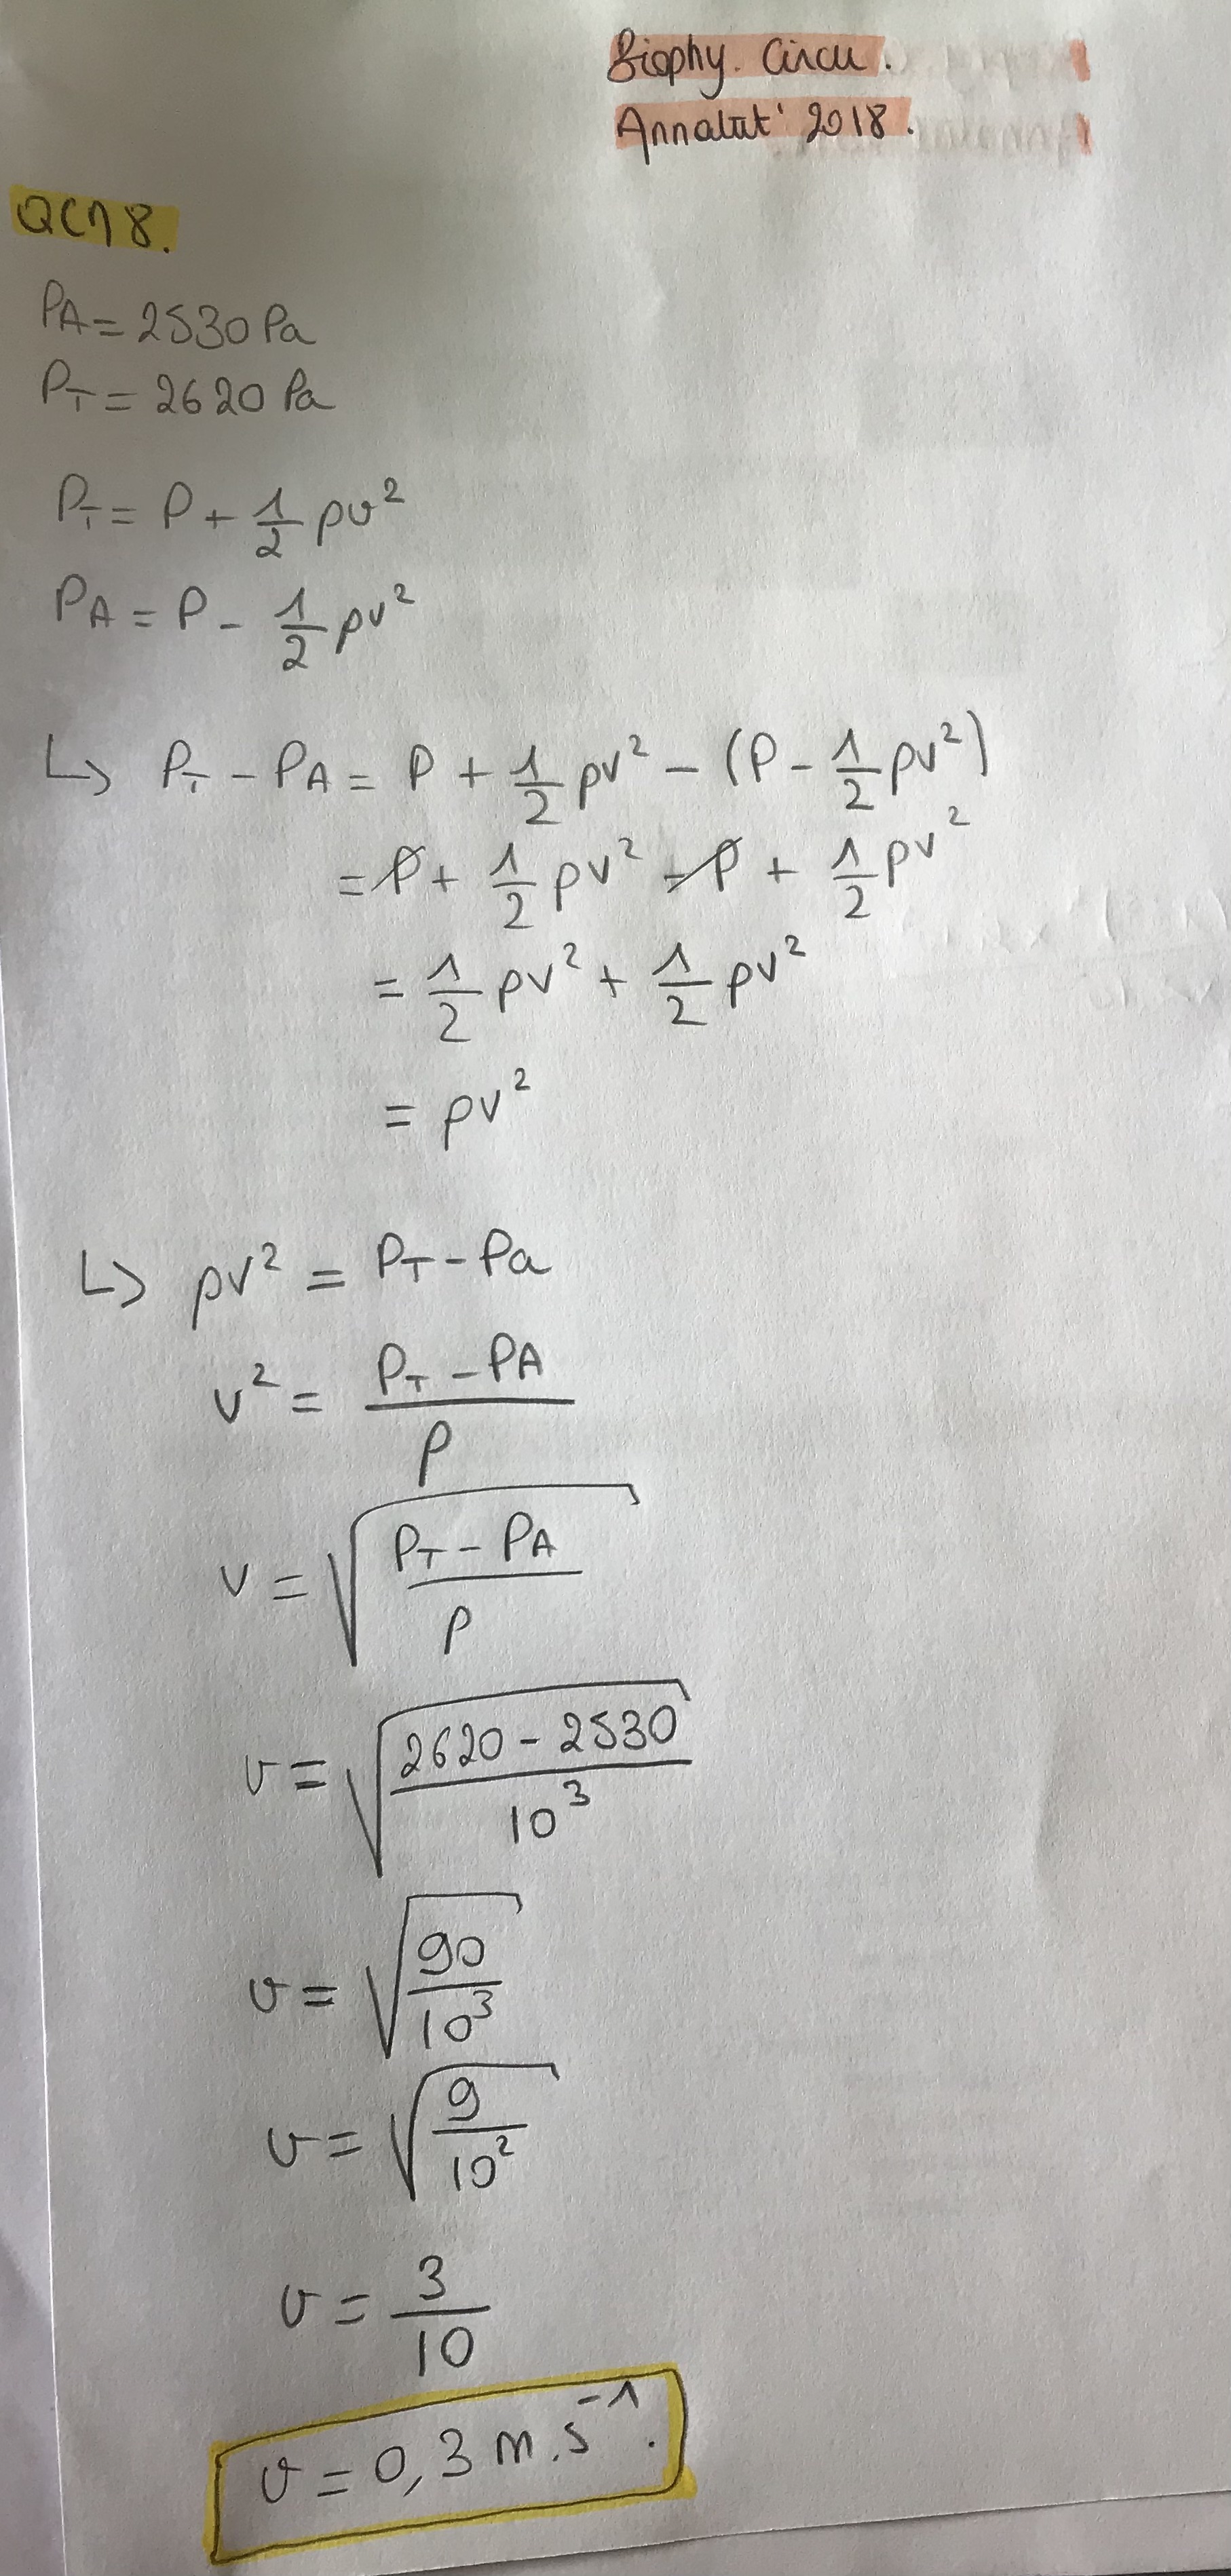 Biophy. Circu.
Annatut' 2018.
QCM 8.
PA = 2530 Pa
PT = 2620 Pa
PT = P + 1/2 ρv²
PA = P - 1/2 ρv²
↳ PT - PA = P + 1/2 ρv² - (P - 1/2 ρv²)
= P + 1/2 ρv² - P + 1/2 ρv²
= 1/2 ρv² + 1/2 ρv²
= ρv²
↳ ρv² = PT - Pa
v² = (PT - PA)/ρ
v = √((PT - PA)/ρ)
v = √((2620 - 2530)/10³)
v = √(90/10³)
v = √(9/10²)
v = 3/10
v = 0,3 m.s⁻¹.